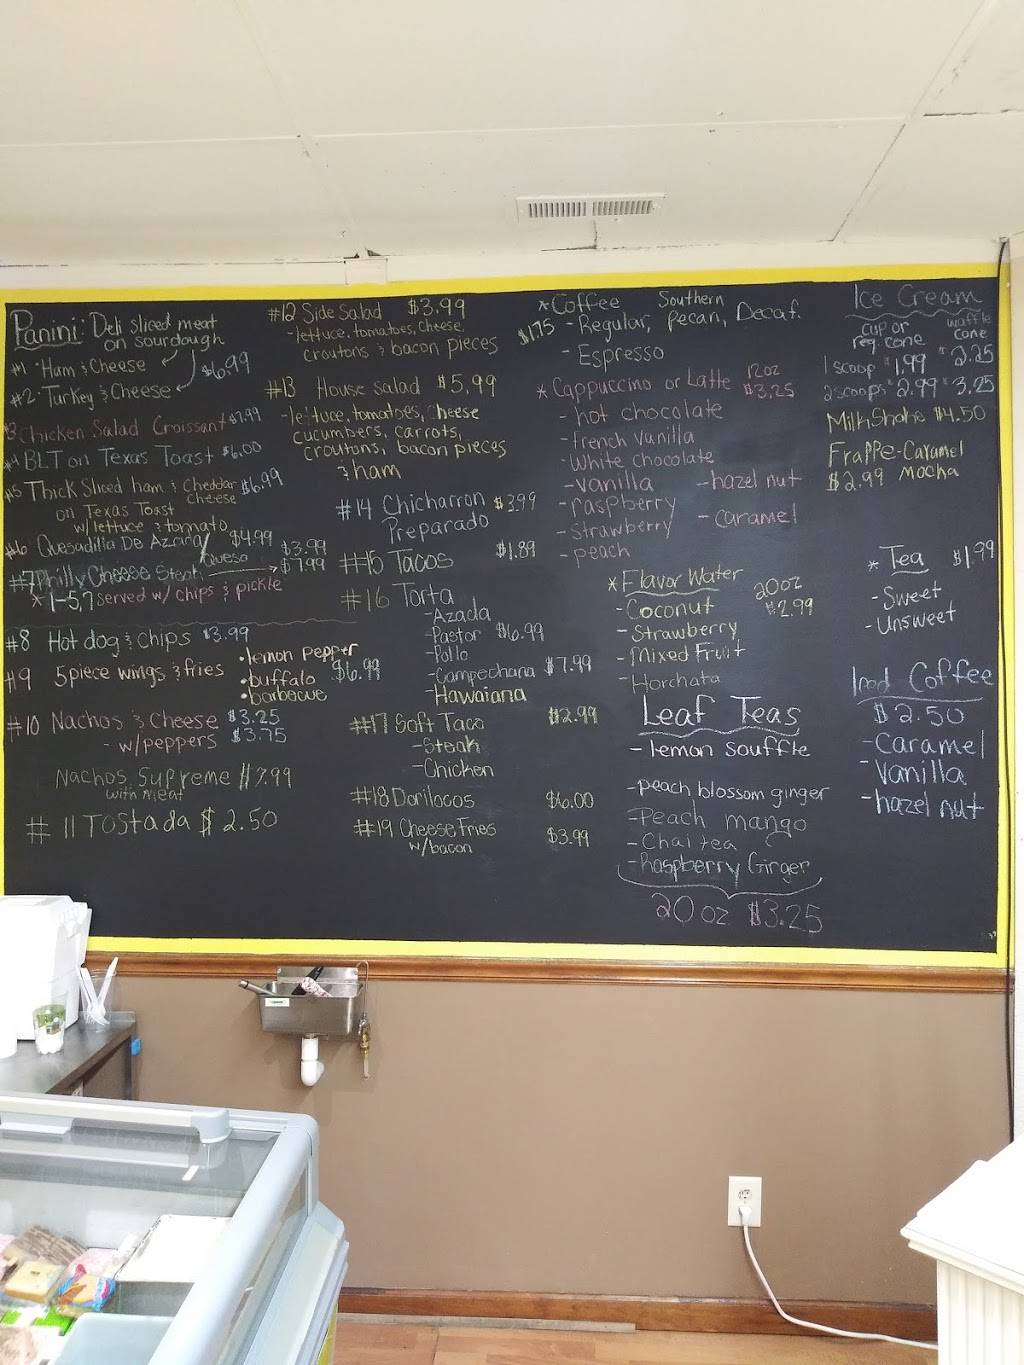 Panini: Deli sliced meat
on sourdough
#1 Ham & Cheese
$6.99
#2 Turkey & Cheese
#3 Chicken Salad Croissant $7.99
#4 BLT on Texas Toast $6.00
#5 Thick Sliced ham & Cheddar Cheese $6.99
on Texas Toast
w/ lettuce & tomato
#6 Quesadilla De Azada/ $4.99
Queso $3.99
#7 Philly Cheese Steak $7.99
* 1-5,7 served w/ chips & pickle
#8 Hot dog & chips $3.99
#9 5piece wings & fries $6.99
• lemon pepper
• buffalo
• barbecue
#10 Nachos & Cheese $3.25
- w/peppers $3.75
Nachos Supreme $7.99
with meat
# 11 Tostada $ 2.50
#12 Side Salad $3.99
- lettuce, tomatoes, cheese,
croutons & bacon pieces
#13 House salad $5.99
- lettuce, tomatoes, cheese
cucumbers, carrots,
croutons, bacon pieces
& ham
#14 Chicharron $3.99
Preparado
#15 Tacos $1.89
#16 Torta
- Azada
- Pastor $6.99
- Pollo
- Campechana $7.99
- Hawaiana
#17 Soft Taco $2.99
- Steak
- Chicken
#18 Dorilocos $6.00
#19 Cheese Fries $3.99
w/bacon
* Coffee
$1.75 - Regular, Southern Pecan, Decaf.
- Espresso
* Cappuccino or Latte 12oz $3.25
- hot chocolate
- french vanilla
- White chocolate
- vanilla - hazel nut
- raspberry
- strawberry - caramel
- peach
* Flavor Water 20oz
- Coconut $2.99
- Strawberry
- Mixed Fruit
- Horchata
Leaf Teas
- lemon souffle
- peach blossom ginger
- Peach mango
- Chai tea
- Raspberry Ginger
20 oz $3.25
Ice Cream
cup or reg. cone waffle cone
1 scoop $1.99 $2.25
2 scoops $2.99 $3.25
MilkShake $4.50
Frappe-Caramel
$2.99 Mocha
* Tea $1.99
- Sweet
- Unsweet
Iced Coffee
$2.50
- Caramel
- Vanilla
- hazel nut